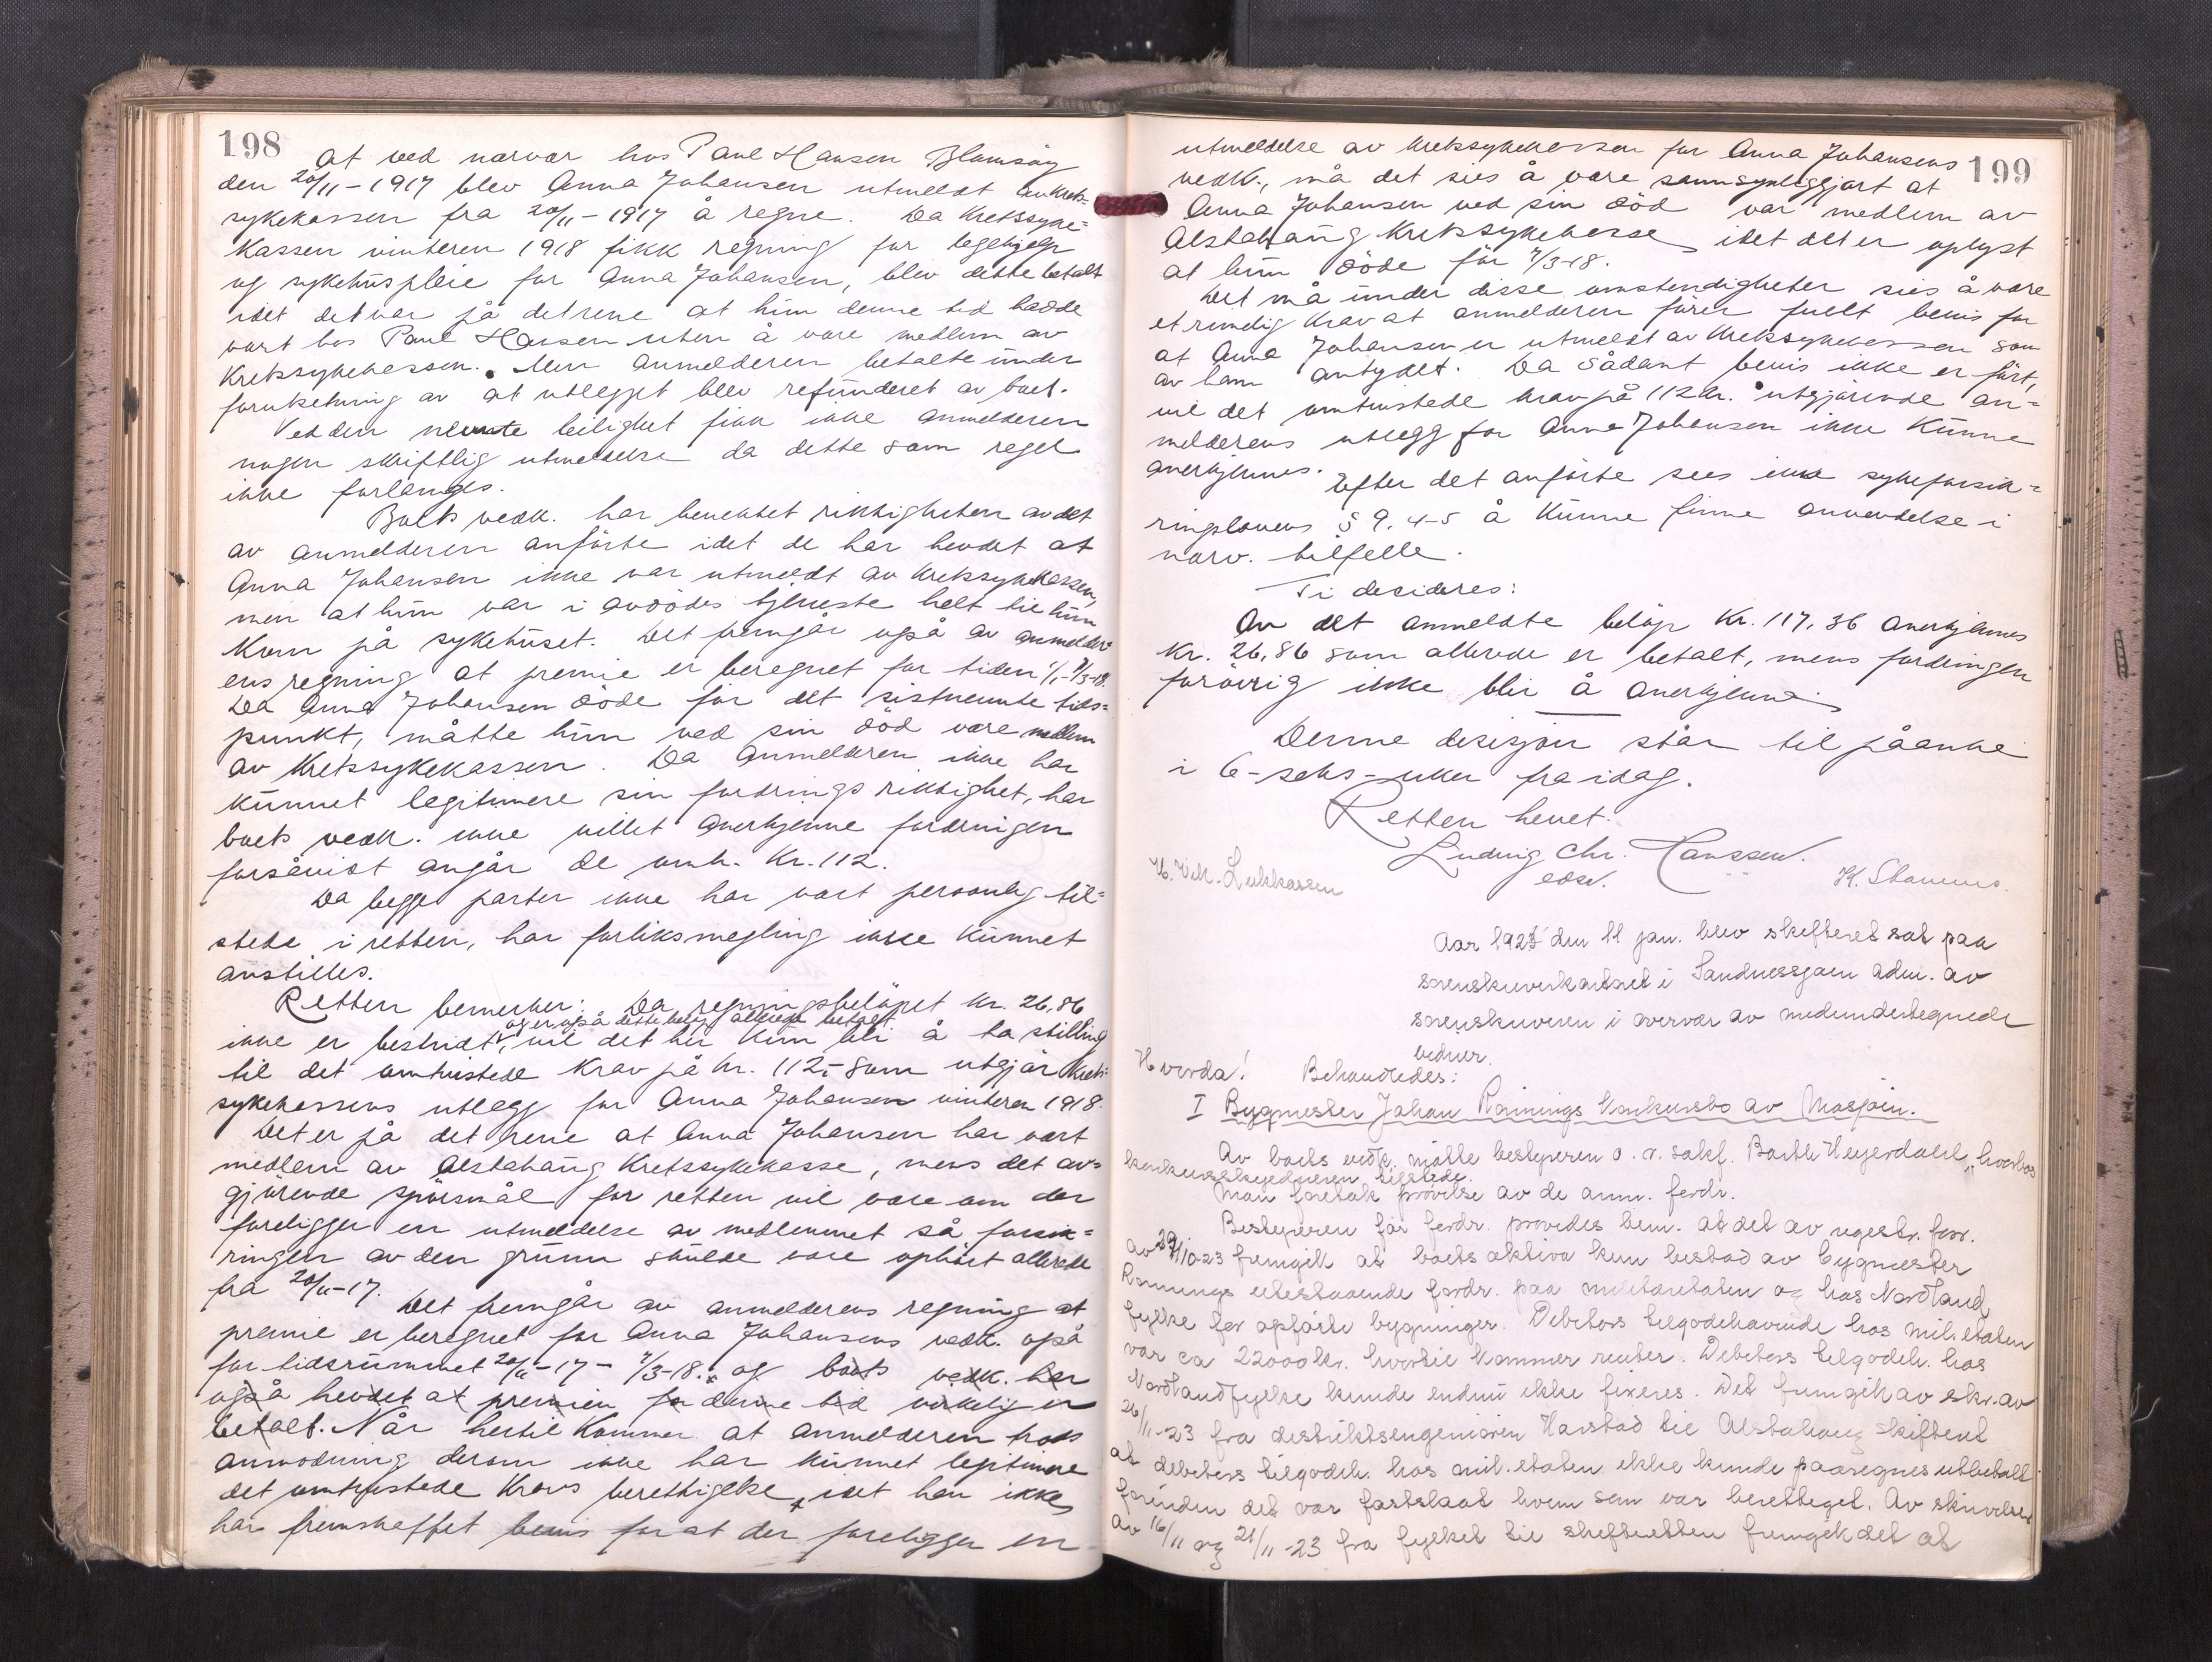 198
at ved nærvær hos Paul Hansen Blomsøy
den 20/11-1917 blev Anna Johansen utmeldt av Krets-
sykekassen fra 20/11-1917 å regne. Da Kretssyke=
kassen vinteren 1918 fikk regning for legehjelp
og sykehuspleie for Anna Johansen, blev dette betalt
idet det var på det rene at hun denne tid hadde
vært hos Paul Hansen uten å være medlem av
Kretssykekassen. Men anmelderen betalte under
forutsetning av at utlegget blev refunderet av boet.
Ved den nevnte leilighet fikk ikke anmelderen
nogen skriftlig utmeldelse da dette som regel
ikke forlanges.
Boets vedk. har benektet riktigheten av det
av anmelderen anførte idet de har hevdet at
Anna Johansen ikke var utmeldt av Kretssykekassen,
men at hun var i avdødes tjeneste helt til hun
kom på sykehuset. Det fremgår også av anmelder-
ens regning at premie er beregnet for tiden 1/1-7/3-18.
Da Anna Johansen døde før det sistnevnte tids=
punkt, måtte hun ved sin død være medlem
av Kretssykekassen. Da Anmelderen ikke har
kunnet legitimere sin fordrings riktighet, har
boets vedk. ikke villet anerkjenne fordringen
forsåvidt angår de omh. Kr. 112.
Da begge parter ikke har vært personlig til=
stede i retten, har forliksmegling ikke kunnet
anstilles.
Retten bemerker: Da regningsbeløpet kr. 26,86
og er også dette beløp allerede betalt
ikke er bestridt, vil det her kun bli å ta stilling
til det omtvistede krav på kr. 112,- som utgjør Krets-
sykekassens utlegg for Anna Johansen vinteren 1918.
Det er på det rene at Anna Johansen har vært
medlem av Alstahaug Kretssykekasse, mens det av=
gjørende spørsmål for retten vil være om der
foreligger en utmeldelse av medlemmet så forsik=
ringen av den grunn skulde være ophørt allerede
fra 20/11-17.
Det fremgår av anmelderens regning at
premie er beregnet for Anna Johansens vedk. også
for tidsrummet 20/11-17 - 7/3-18. og boets vedk. har
også hevdet at premien for denne tid virkelig er
betalt. Når hertil kommer at anmelderen trods
anmodning derom ikke har kunnet legitimere
det omtvistede kravs berettigelse, idet han ikke
har fremskaffet bevis for at der foreligger en
199
utmeldelse av Kretssykekassen for Anna Johansens
vedk., må det sies å være sannsynliggjort at
Anna Johansen ved sin død var medlem av
Alstahaug Kretssykekasse idet det er oplyst
at hun døde før 7/3-18.
Det må under disse omstendigheter sies å være
et rimelig krav at anmelderen fører fuldt bevis for
at Anna Johansen er utmeldt av Kretssykekassen som
av ham antydet. Da sådant bevis ikke er ført,
vil det omtvistede krav på 112 kr. utgjørende an=
melderens utlegg for Anna Johansen ikke kunne
anerkjennes.
Efter det anførte sees ikke sykeforsik=
ringslovens § 9, 4-5 å kunne finne anvendelse i
nærv. tilfelle.
Ti desideres:
Av det anmeldte beløp Kr. 117,36 anerkjennes
Kr. 26,86 som allerede er betalt, mens fordringen
forøvrig ikke blir å anerkjenne.
Denne desisjon står til påanke
i 6-seks-uker fra idag.
Retten hevet.
Ludvig Chr. Hanssen.
edsv.
H. Vilh. Lukkassen
K. Stamnes.
Aar 1924 den 11 jan. blev skifteret sat paa
sorenskriverkontoret i Sandnessjøen adm. av
sorenskriveren i overvær av medundertegnede
vidner.
Hvorda! Behandledes:
I Bygmester Johan Rønnings konkursbo av Mosjøen.
Av boets vedk. møtte bestyreren o. r. sakf. Barth Heyerdahl, hvorhos
konkursskyldneren tilstede.
Man foretok prøvelse av de anm. fordr.
Bestyreren før fordr. prøvedes bem. at det av registr. forr.
av 29/10-23 fremgik at boets aktiva kun bestod av bygmester
Rønnings utestaaende fordr. paa militæretaten og hos Nordland
fylke for opførte bygninger. Debitors tilgodehavende hos mil.etaten
var ca 22000 kr. hvortil kommer renter. Debitors tilgodeh. hos
Nordland fylke kunde endnu ikke fixeres. Det fremgik av skr. av
26/11-23 fra distriktsengeniøren Harstad til Alstahaug skifteret
at debitors tilgodeh. hos mil.etaten ikke kunde paaregnes utbetalt
forinden det var fastslaat hvem som var berettiget. Av skrivelser
av 16/11 og 21/11-23 fra fylket til skifteretten fremgik det at